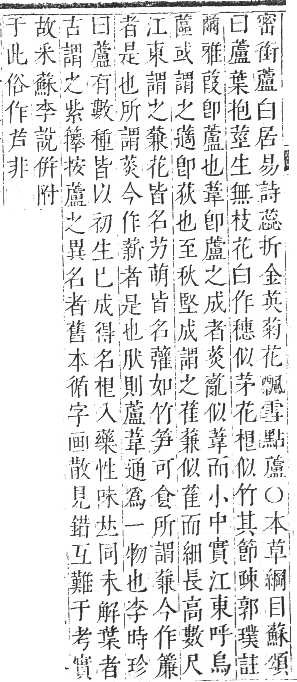 密銜蘆白居易詩蕊折金英菊花飄雪點蘆○本草綱目蘇頌
曰蘆葉抱莖生無枝花白作穗似茅花根似竹其節疎郭璞註
爾雅葭卽蘆也葦卽蘆之成者菼薍似葦而小中實江東呼烏
蓲或謂之薖卽荻也至秋堅成謂之萑蒹似萑而細長高數尺
江東謂之蒹花皆名芀萌皆名虇如竹笋可食所謂蒹今作簾
者是也所謂菼今作薪者是也肰則蘆葦通爲一物也李時珍
曰蘆有數種皆以初生已成得名根入藥性味㫮同未解葉者
古謂之紫籜按蘆之異名者舊本循字画散見錯互難于考實
故釆蘇李說倂附
于此俗作芦非